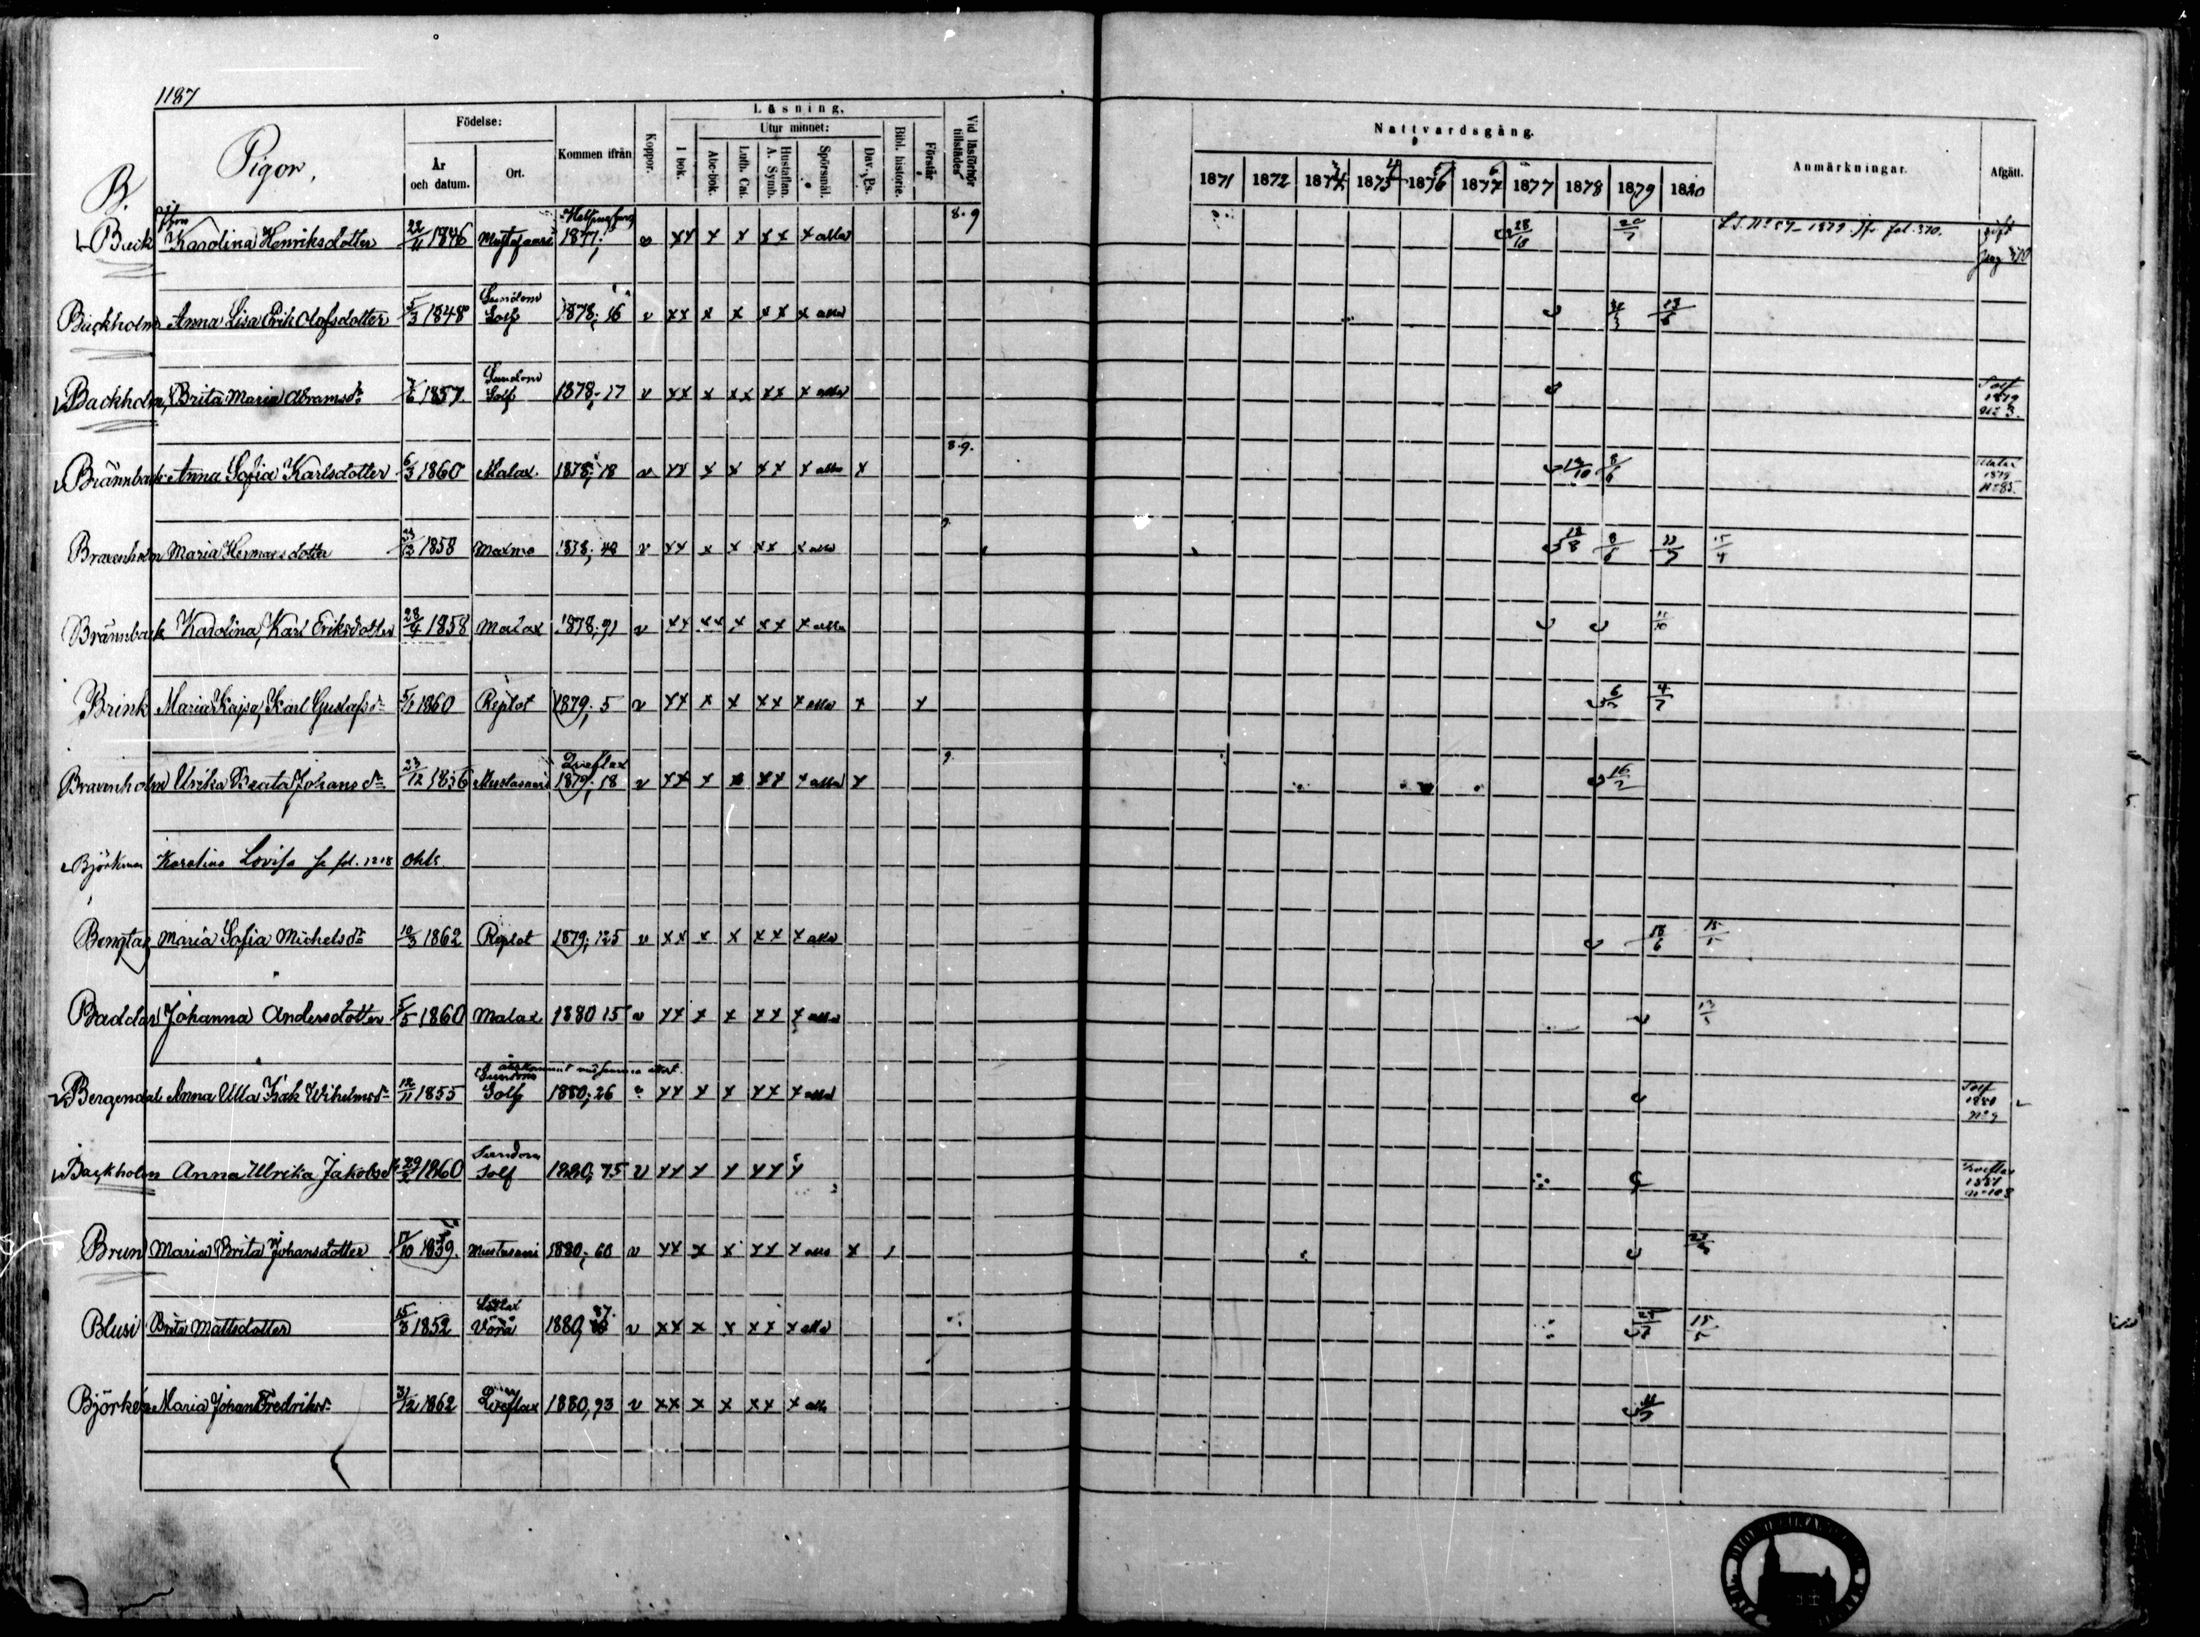 1187
B.
Pigor.
Födelse:
År och datum.
Ort.
Kommen ifrån
Koppor.
Läsning.
I bok.
Utur minnet:
Abc-bok.
Luth. Cat.
Hustaflan. A. Symb.
Spörsmål.
Dav. Ps.
Bibl. historie.
Förstår
Vid läsförhör tillstädes
Nattvardsgång.
1871 1872 1874 1875 1876 1877 1877 1878 1879 1880
Anmärkningar.
Afgått.
Back Karolina Henriksdotter 22/11 1846 Mustasaari Helsingfors 1877; v xx x x xx x alla 8.9 28/10 L.S. No 59-1879. Jfr fol. 370. gift pag 370
Backholm Anna Lisa Erik Olofsdotter 5/3 1848 Sundom Solf 1878; 16 v xx x x xx x alla
Backholm, Brita Maria Abramsdr 7/6 1857. Sundom Solf 1878; 17 v xx x xx xx x alla Solf 1879 No 3.
Brännback Anna Sofia Karlsdotter 6/3 1860 Malax. 1878; 18 v xx x x xx x alla x 8.9. 12/10 8/6 Malax 1879 No 85.
Bravenholm Maria Hermansdotter 1858 Maxmo 1878; 48 v xx x x xx x alla 9. 18/8 8/6 15/4
Brännback Karolina, Karl Eriksdotter 28/4 1858 Malax 1878; 91 v xx xx x xx x alla 11/10
Brink Maria Kajsa, Karl Gustafsdr 5/1 1860 Replot 1879; 5 v xx x x xx x alla x x 4/7
Bravenholm Ulrika Beata Johansdr 23/12 1836 Mustasaari Qveflax 1879; 58 v xx x x xx x alla x 9. 16/2
Björkman Karolina Lovisa fr fol. 1218
Bengtar, Maria Sofia Michelsdr 10/3 1862 Replot 1879; 125 v xx x x xx x alla 18/6
Baddar Johanna Andersdotter 5/5 1860 Malax 1880 15 v xx x x xx x alla
Bergendal Anna Ulla Isak Wihelmsdr 12/11 1855 Sundom Solf 1880; 26 xx x x xx x alla Solf 1880 No 9
Backholm Anna Ulrika Jakobsdr 29/2 1860 Sundom Solf 1880; 75 v xx x x xx x 1881 No 108
Brun Maria Brita Johansdotter 17/10 1839. Mustasaari 1880; 60 v xx x x xx x alla x
Blusi Brita Mattsdotter 15/3 1852 Vörå 1880, 87. v xx x x xx x alla 15/5
Björkén Maria Johan Fredriksdr 31/12 1862 Qveflax 1880, 93 v xx x x xx x alla